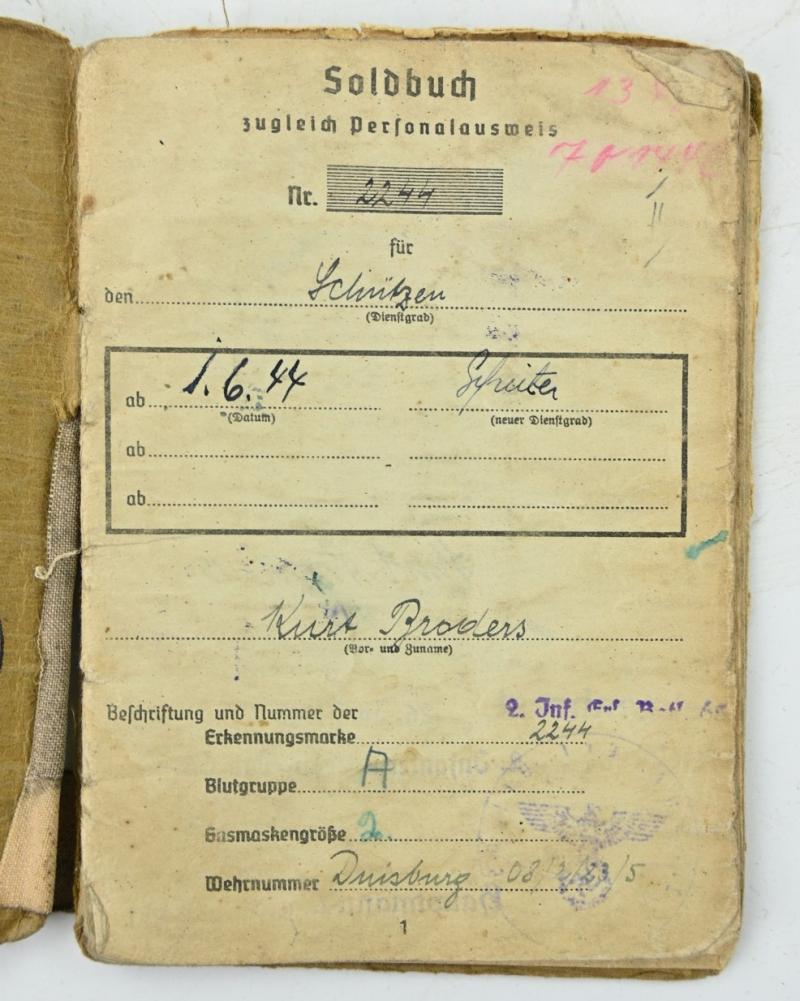 Soldbuch
zugleich Personalausweis
Nr. 2244
für
den Schützen
(Dienstgrad)
ab 1.6.44 Gefreiter
(Datum) (neuer Dienstgrad)
ab
ab
Kurt Broders
(Vor- und Zuname)
Beschriftung und Nummer der 2. Inf.
Erkennungsmarke 2244
Blutgruppe A
Gasmaskengröße 2.
Wehrnummer Duisburg 08/2/23/5
1